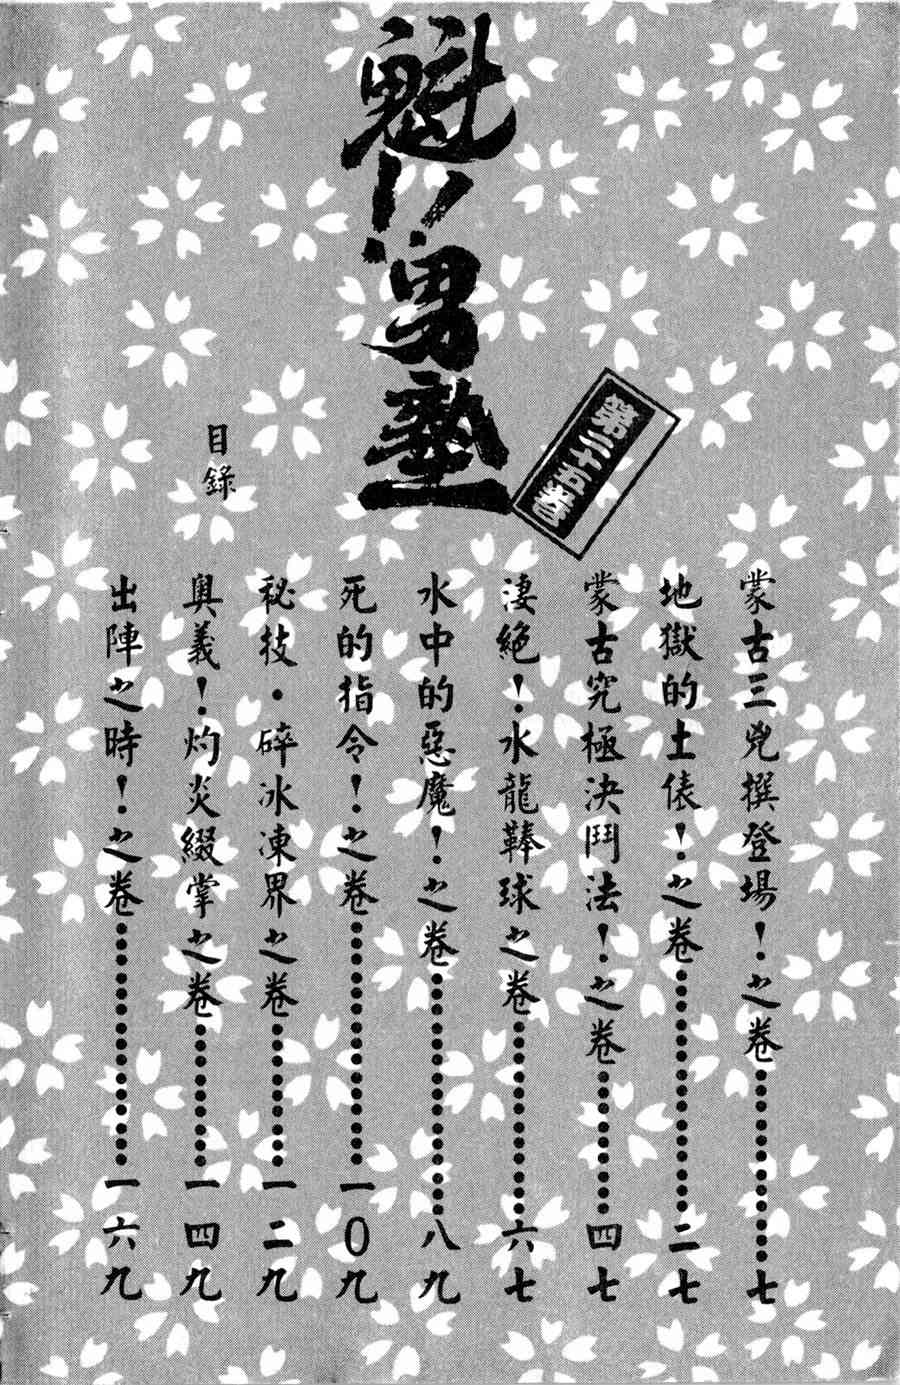 魁!!男塾
第二十五卷
目錄
蒙古三兇撰登場!之卷………………七
地獄的土俵!之卷………………二七
蒙古究極決鬥法!之卷………………四七
淒絕!水龍鞭球之卷………………六七
水中的惡魔!之卷………………八九
死的指令!之卷………………一0九
秘技・碎冰凍界之卷………………一二九
奧義!灼炎綴掌之卷………………一四九
出陣之時!之卷………………一六九